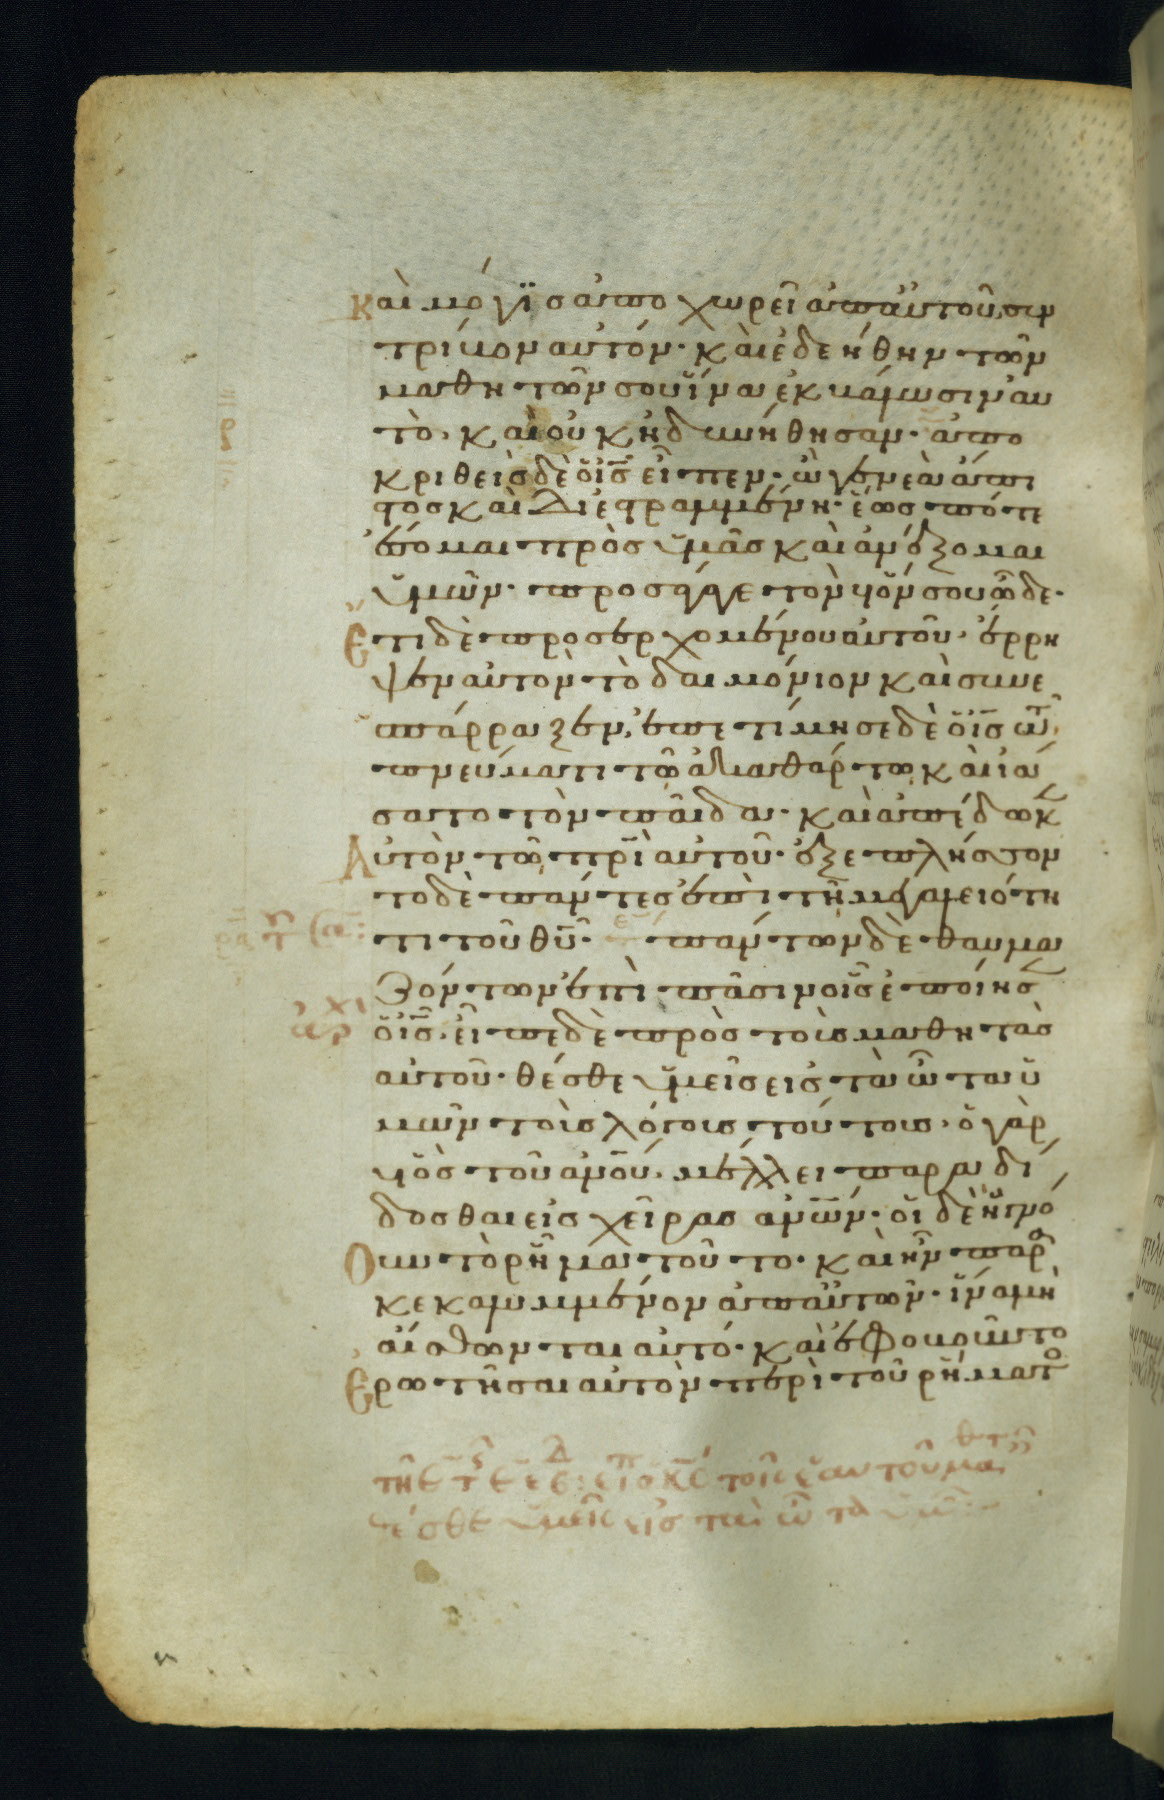 καὶ μόγϊσ ἀποχωρεῖ ἀπ' ἀυτοῦ, συν
τρίβον αυτόν· καὶ ἐδεήθην τῶν
μαθητῶν σου ἵνα ἐκβάλωσιν αυ
τὸ, καὶ οὐκ ἠδυνήθησαν· ἀπο
κριθεὶσ δὲ ὁ ισ εἶπεν· ὦ γενεὰ ἄπι
στοσ καὶ διεστραμμένη· ἕωσ πότε
ἔσομαι πρὸσ ὑμᾶσ καὶ ἀνέξομαι
ὑμῶν· προσάγαγε τὸν υόν σου ὧδε·
Ἔτι δὲ προσερχομένου αὐτοῦ· ἔρρη
ξεν αὐτὸν τὸ δαιμόνιον καὶ συνε
σπάραξεν, ἐπετίμησε δὲ ὁ ισ τῶ
πνεύματι τῶ ἀκαθάρτω, καὶ ἰά
σατο τὸν παῖδα· καὶ ἀπέδωκ
Αὐτὸν τῶ πρὶ αὐτοῦ· ἐξεπλήσσον
το δὲ πάντεσ ἐπὶ τῆ μεγαλειότη
τι τοῦ θυ· πάντων δὲ θαυμα
ζόντων ἐπὶ πᾶσιν οἷσ ἐποίησ
ὁ ισ· εἶπε δὲ πρὸσ τοὺσ μαθητὰσ
αὐτοῦ· θέσθε ὑμεῖσ εἰσ τὰ ὦτα ὑ
μῶν τοὺσ λόγουσ τούτουσ· ὁ γὰρ
υὸσ τοῦ ἀνου, μέλλει παραδί
δοσθαι εἰσ χεῖρασ ἀνων· οἱ δὲ ἠγνό
Ουν τὸ ρῆμα τοῦτο· καὶ ἦν παρ
κεκαλυμμένον ἀπ' ἀυτῶν· ἵνα μὴ
αἴσθωνται αὐτό· καὶ ἐφοβοῦντο
Ἐρωτῆσαι αὐτὸν περὶ τοῦ ρήματ
τοῖσ ἑαυτοῦ μαθτ
θέσθε ὑμεῖσ εἰσ τὰ ὦτα ὑμῶ